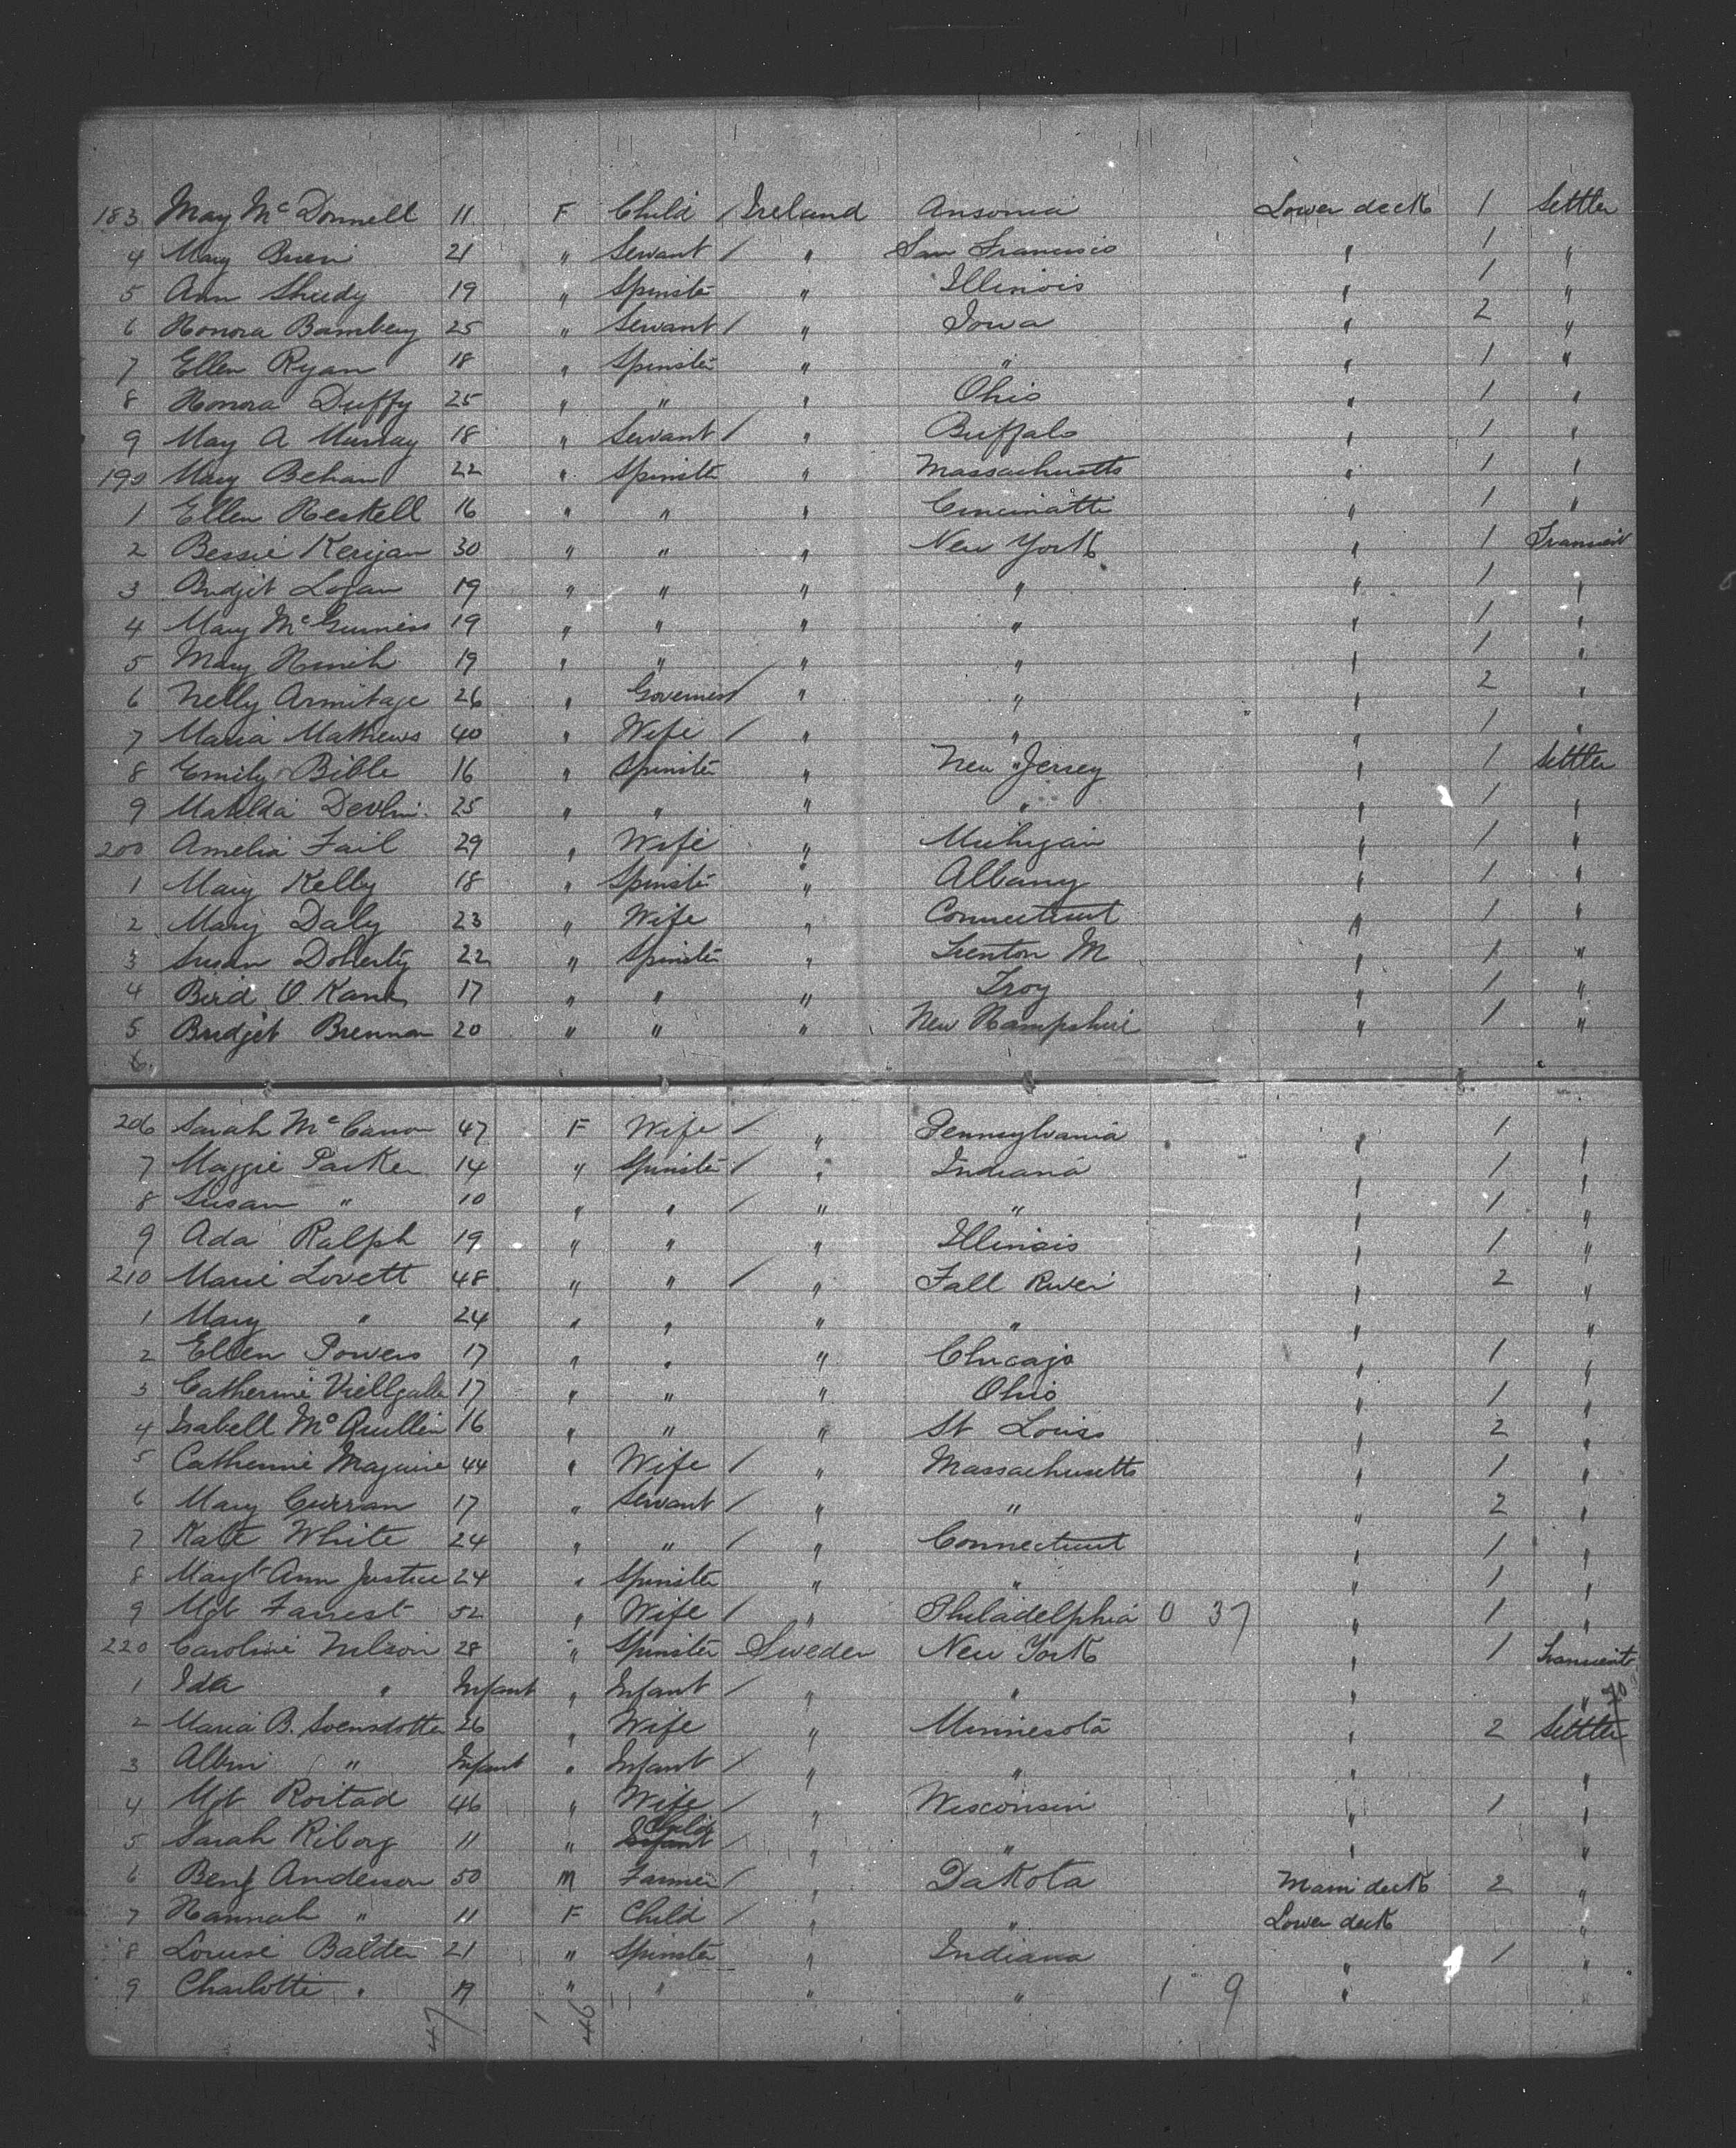 183 May McDonnell 11 F Child / Ireland Ansonia Lower deck 1 Settler
4 Mary Brien 21 " Servant / " San Francisco " 1 "
5 Ann Sheedy 19 " Spinster " Illinois " 1 "
6 Honora Bambery 25 " Servant / " Iowa " 2 "
7 Ellen Ryan 18 " Spinster " " " 1 "
8 Honora Duffy 25 " " " Ohio " 1 "
9 May A Murray 18 " Servant / " Buffalo " 1 "
190 Mary Behan 22 " Spinster " Massachusetts " 1 "
1 Ellen Heskell 16 " " " Cincinatti " 1 "
2 Bessie Kerigan 30 " " " New York " 1 Transient
3 Bridjit Logan 19 " " " " " 1 "
4 Mary McGuiness 19 " " " " " 1 "
5 Mary 19 " " " " " 1 "
6 Nelly Armitage 26 " Governess / " " " 2 "
7 Maria Mathews 40 " Wife / " " " 1 "
8 Emily Bible 16 " Spinster " New Jersey " 1 Settler
9 Matilda Devlin 25 " " " " " 1 "
200 Amelia Fail 29 " Wife " Michigan " 1 "
1 Mary Kelly 18 " Spinster " Albany " 1 "
2 Mary Daly 23 " Wife " Connecticut " 1 "
3 Susan Doherty 22 " Spinster " Trenton M " 1 "
4 Bird O Kane 17 " " " Troy " 1 "
5 Bridjet Brennan 20 " " " New Hampshire " 1 "
6.
206 Sarah McCanon 47 F Wife / " Pennsylvania " 1 "
7 Maggie Parker 14 " Spinster / " Indiana " 1 "
8 Susan " 10 " " / " " " 1 "
9 Ada Ralph 19 " " " Illinois " 1 "
210 Marie Lovett 48 " " / " Fall River " 2 "
1 Mary " 24 " " " " " "
2 Ellen Powers 17 " " " Chicago " 1 "
3 Catherine 17 " " " Ohio " 1 "
4 Isabell McQuillin 16 " " " St Louis " 2 "
5 Catherine Maguire 44 " Wife / " Massachusetts " 1 "
6 Mary Curran 17 " Servant / " " " 2 "
7 Kate White 24 " " / " Connecticut " 1 "
8 Margt Ann Justice 24 " Spinster " " " 1 "
9 Mgt Farrest 52 " Wife / " Philadelphia 0 37 " 1 "
220 Caroline Nilson 28 " Spinster Sweden New York " 1 Transient
1 Ida " Infant " Infant / " " " " 70
2 Maria B. Svensdotter 26 " Wife " Minnesota " 2 Settler
3 Albin " Infant " Infant / " " " "
4 Mgt Roitad 46 " Wife / " Wisconsin " 1 "
5 Sarah Riborg 11 " Infant Child / " " " "
6 Benj Anderson 50 M Farmer / " Dakota Main deck 2 "
7 Hannah " 11 F Child / " " Lower deck "
8 Louise Balder 21 " Spinster " Indiana " 1 "
9 Charlotte " 19 " " " " 1 9 "
47 1 46